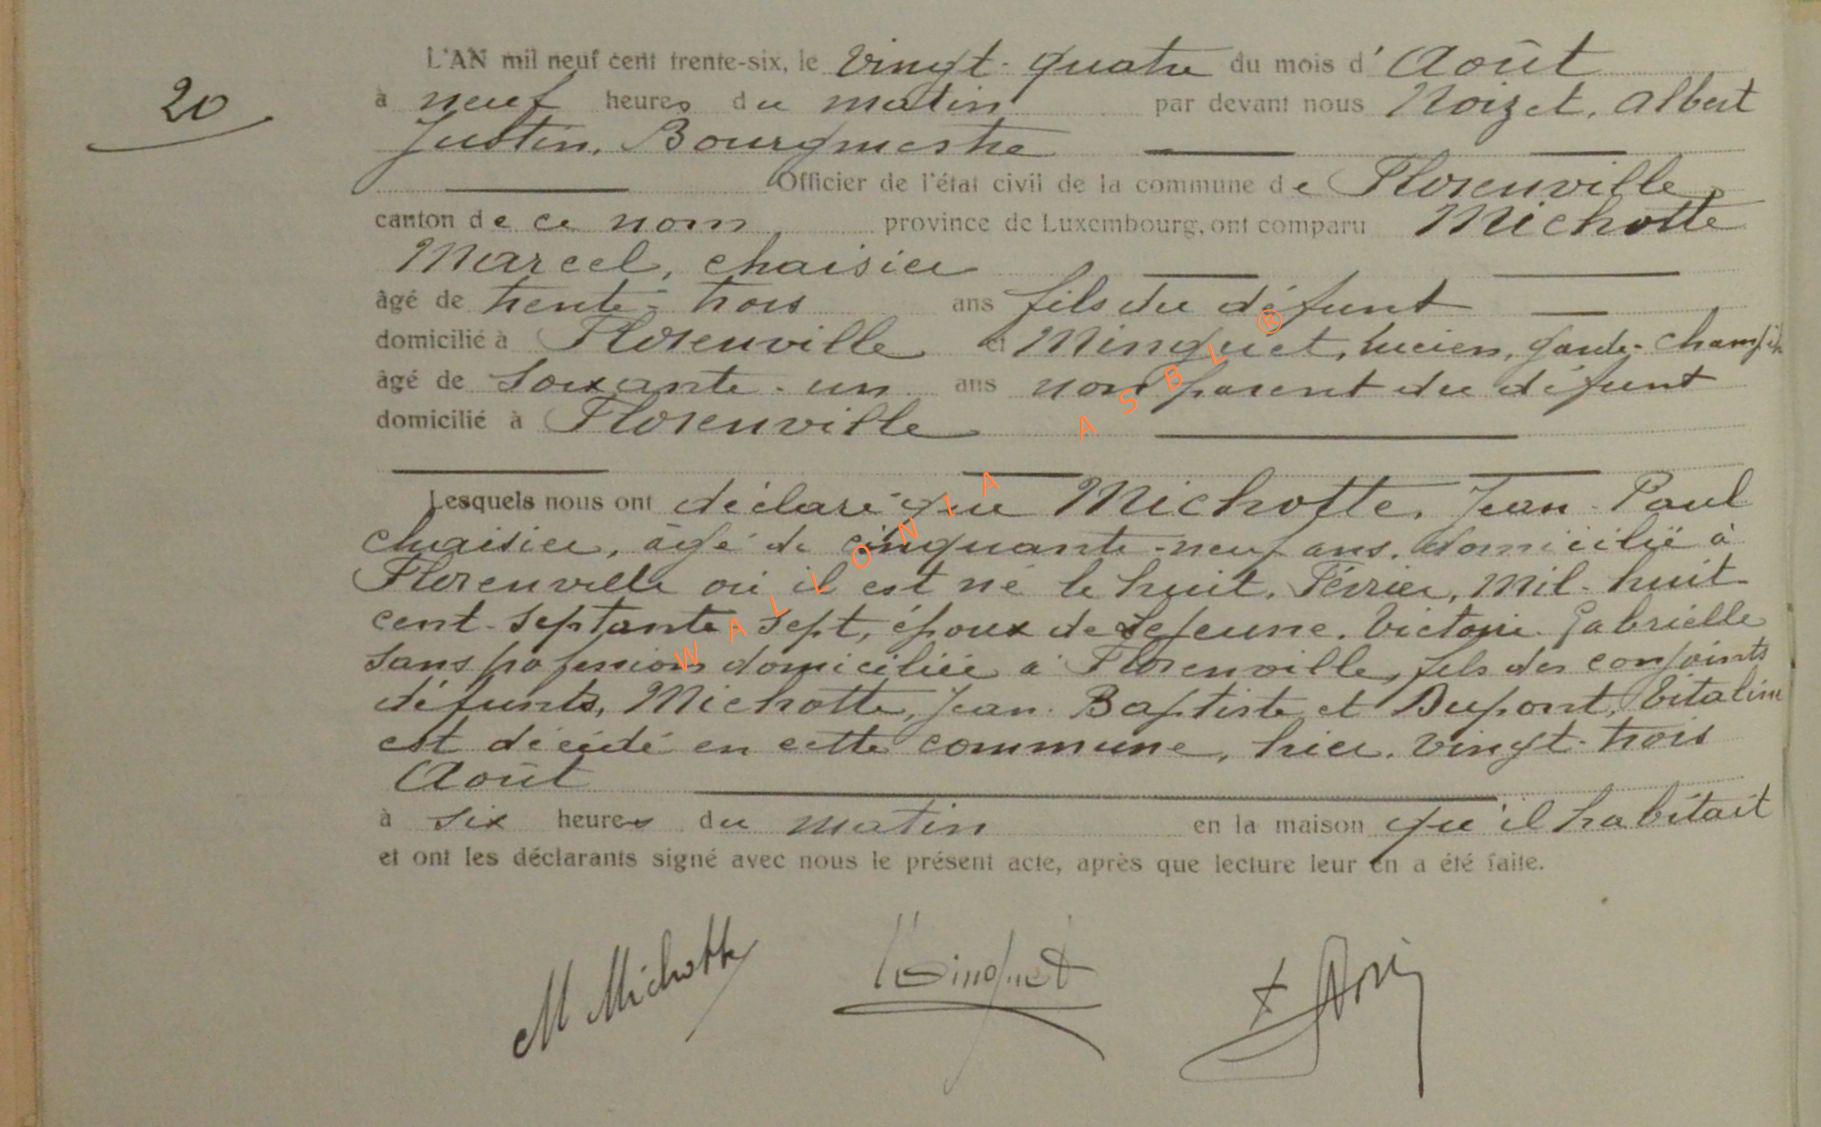 L'AN mil neuf cent trente-six, le Vingt-quatre du mois d' Août
20
à neuf heures du matin par devant nous Noizet, Albert
Justin, Bourgmestre
Officier de l'état civil de la commune de Florenville,
canton de ce nom province de Luxembourg, ont comparu Michotte
Marcel, chaisier
âgé de trente-trois ans fils du défunt
domicilié à Florenville et Minguet, Lucien, garde-champêtre
âgé de soixante-un ans non parent du défunt
domicilié à Florenville
Lesquels nous ont déclaré que Michotte, Jean-Paul
chaisier, âgé de cinquante-neuf ans, domicilié à
Florenville où il est né le huit, Février, mil-huit
cent-septante sept, époux de Lejeune, Victorie Gabrielle
sans profession domiciliée à Florenville, fils des conjoints
défunts, Michotte, Jean-Baptiste et Dupont, Vitaline
est décédé en cette commune, hier, vingt-trois
Août
à six heures du matin en la maison qu'il habitait
et ont les déclarants signé avec nous le présent acte, après que lecture leur en a été faite.
M Michotte LMinguet
WALLONIA ASBL ®